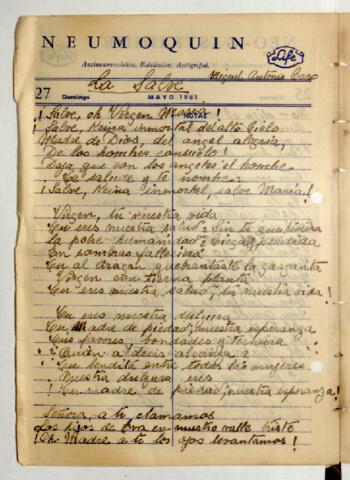 NEUMOQUIN
Life
Antineumocócico, Balsámico, Antigripal.
Miguel Antonio Caro
La Salve
27 Domingo MAYO 1951
NOTAS
¡Salve, oh Virgen María!
¡Salve, Reina inmortal del alto Cielo
Madre de Dios, del angel alegría,
De los hombres consuelo!
Deja que con los angeles el hombre
Te salude y te nombre:
¡Salve, Reina Inmortal, salve María!
Virgen, tú nuestra vida
Tú eres nuestra salud; Sin ti que hiciera
La pobre humanidad? Ciega, perdida
En sombras falleciera
Tú al dragón quebrantaste la garganta
Virgen con tierna planta
Tú eres nuestra salud, tú nuestra vida!
Tú eres nuestra dulzura
Tú, Madre de piedad, nuestra esperanza
Tus favores, bondades y ternura
¿Quién a decir alcanza?
Tú bendita entre todas las mujeres
Nuestra dulzura eres
Tú madre de piedad, nuestra esperanza!
Señora, a ti clamamos
Los hijos de Eva en nuestro valle triste
Oh Madre a ti los ojos levantamos!